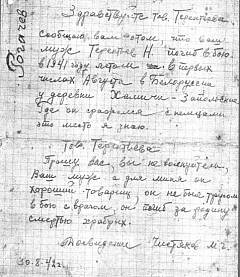 Рогачев
Здравствуйте тов. Терентьева.
Сообщаю вам о том, что ваш
муж Терентьев Н. погиб в бою
в 1941 году летом в первых
числах Августа в Белоруссии
у деревни Халичи - Заполье
где он сражался с немцами
это место я знаю.
Тов. Терентьева
Прошу вас, вы не волнуйтесь,
Ваш муж а для меня он
хороший товарищ, он не был трусом
в бою с врагом, он погиб за родину
смертью храбрых.
До свидания Чистяков М.
30.8.42 г.